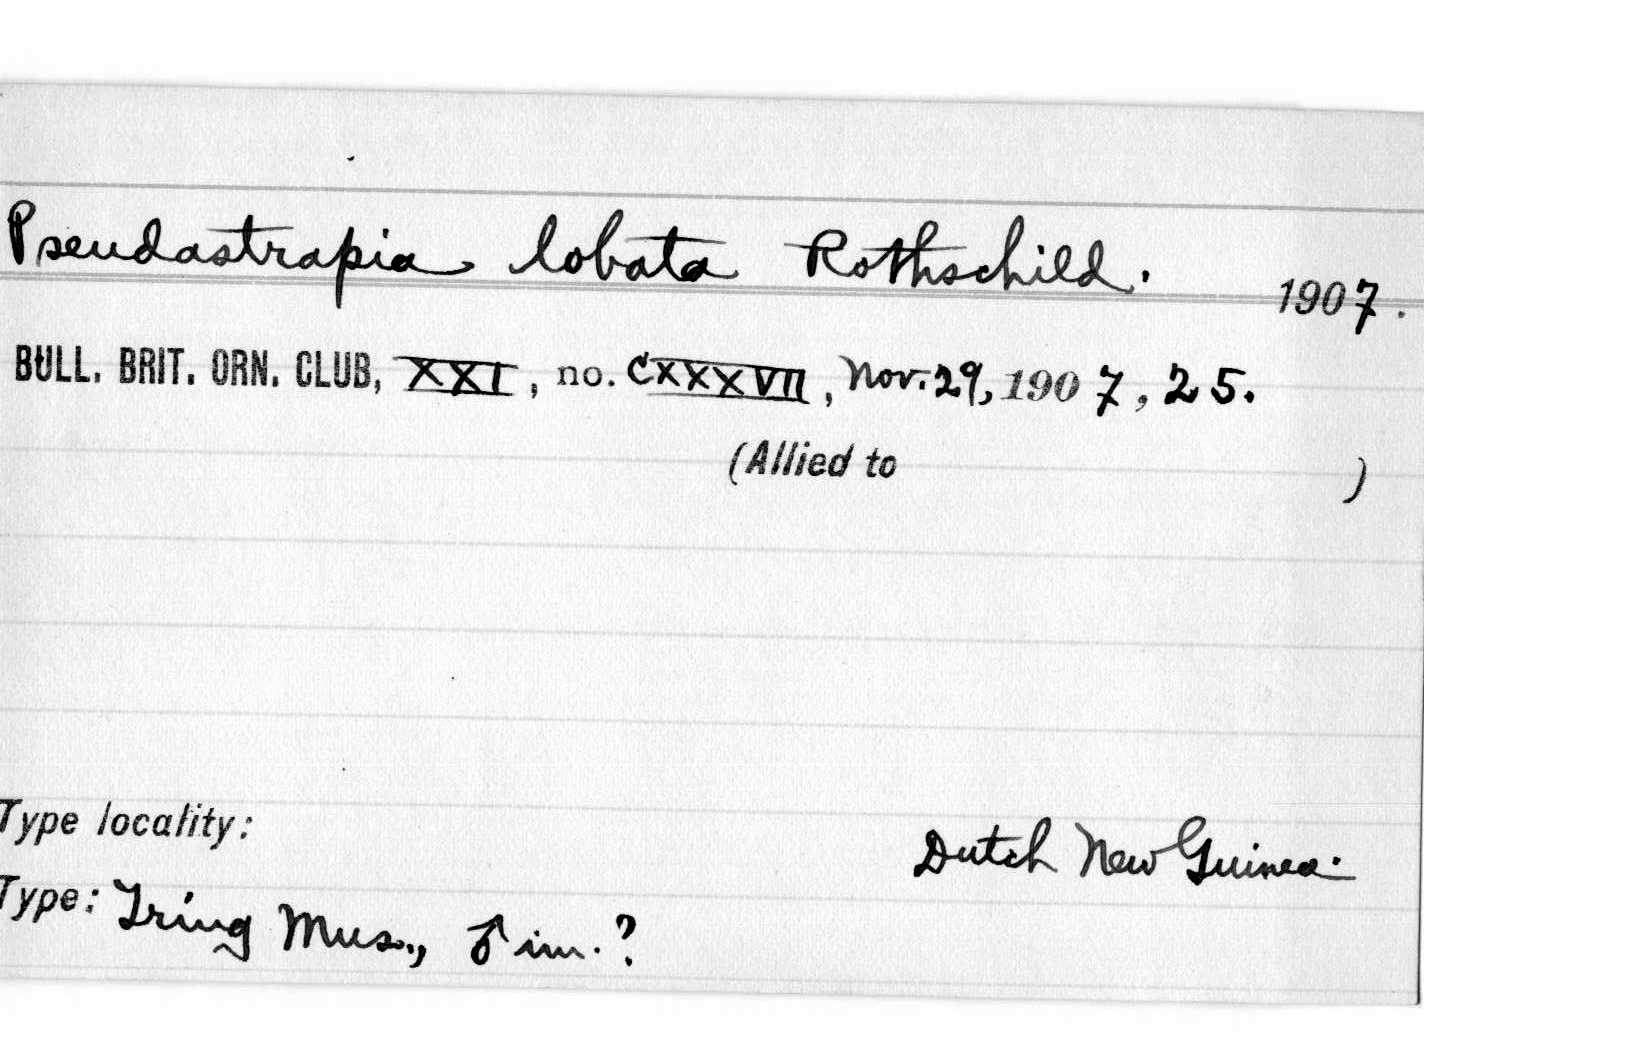 Pseudastrapia lobata Rothschild. 1907.
BULL. BRIT. ORN. CLUB, XXI, no. CXXXVII, Nov. 29, 1907, 25.
(Allied to )
Type locality: Dutch New Guinea.
Type: Tring Mus., ♂ im.?